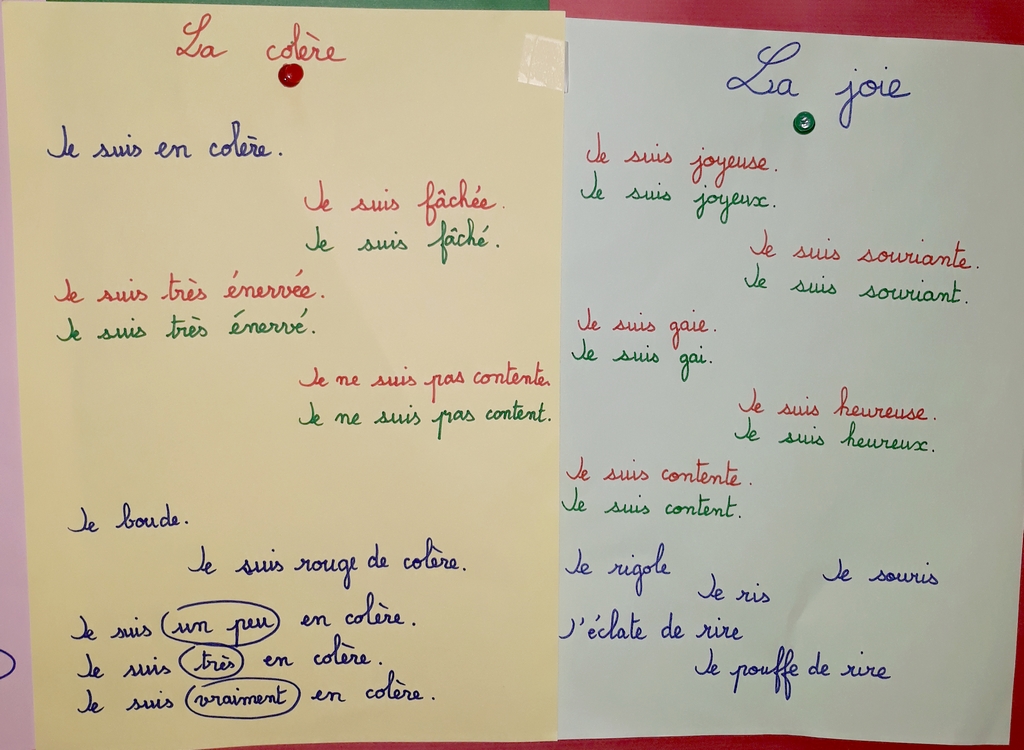 La colère
Je suis en colère.
Je suis fâchée.
Je suis fâché.
Je suis très énervée.
Je suis très énervé.
Je ne suis pas contente.
Je ne suis pas content.
Je boude.
Je suis rouge de colère.
Je suis un peu en colère.
Je suis très en colère.
Je suis vraiment en colère.
La joie
Je suis joyeuse.
Je suis joyeux.
Je suis souriante.
Je suis souriant.
Je suis gaie.
Je suis gai.
Je suis heureuse.
Je suis heureux.
Je suis contente.
Je suis content.
Je rigole
Je ris
Je souris
J'éclate de rire
Je pouffe de rire